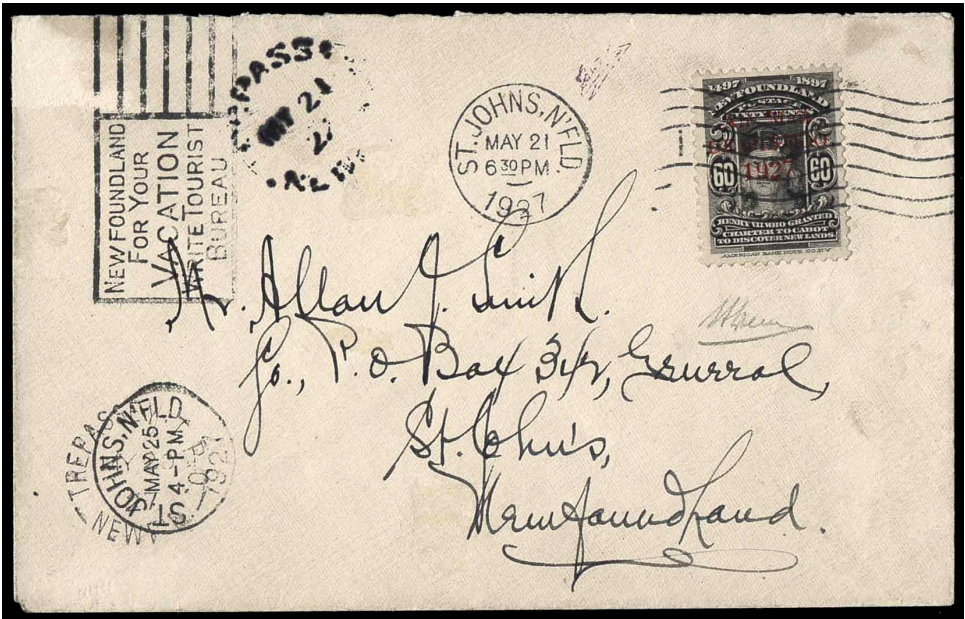 NEWFOUNDLAND
FOR YOUR
VACATION
WRITE TOURIST
BUREAU
MAY 21
ST. JOHNS, N'FLD.
MAY 21
6 30 PM
1927
1497 1897
NEWFOUNDLAND
POSTAGE
CENTS
60 60
1927
HENRY VII WHO GRANTED
CHARTER TO CABOT
TO DISCOVER NEW LANDS
AMERICAN BANK NOTE CO. N.Y.
Mr. Allan J. Smith.
Co., P. O. Box
St. John's,
Newfoundland.
ST JOHNS, N'FLD.
MAY 25
4-PM
TREPASS
NEW